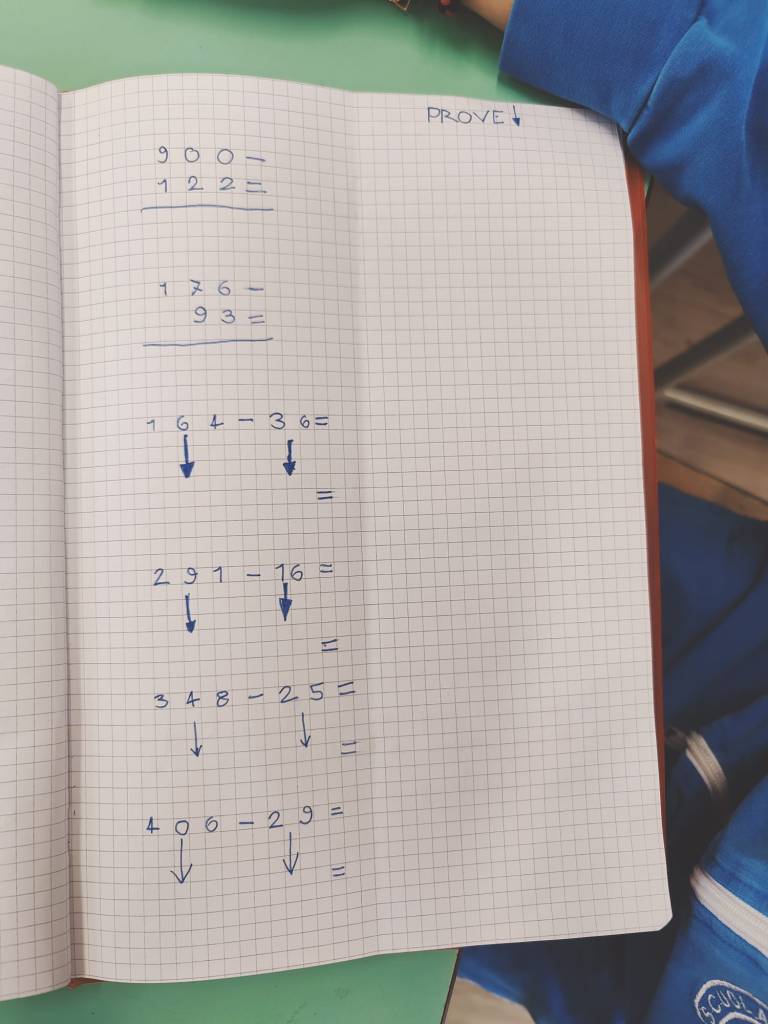 PROVE ↓
900-
122=
176-
93=
164-36=
↓ ↓
=
291-16=
↓ ↓
=
348-25=
↓ ↓
=
406-29=
↓ ↓
=
SCUOLA